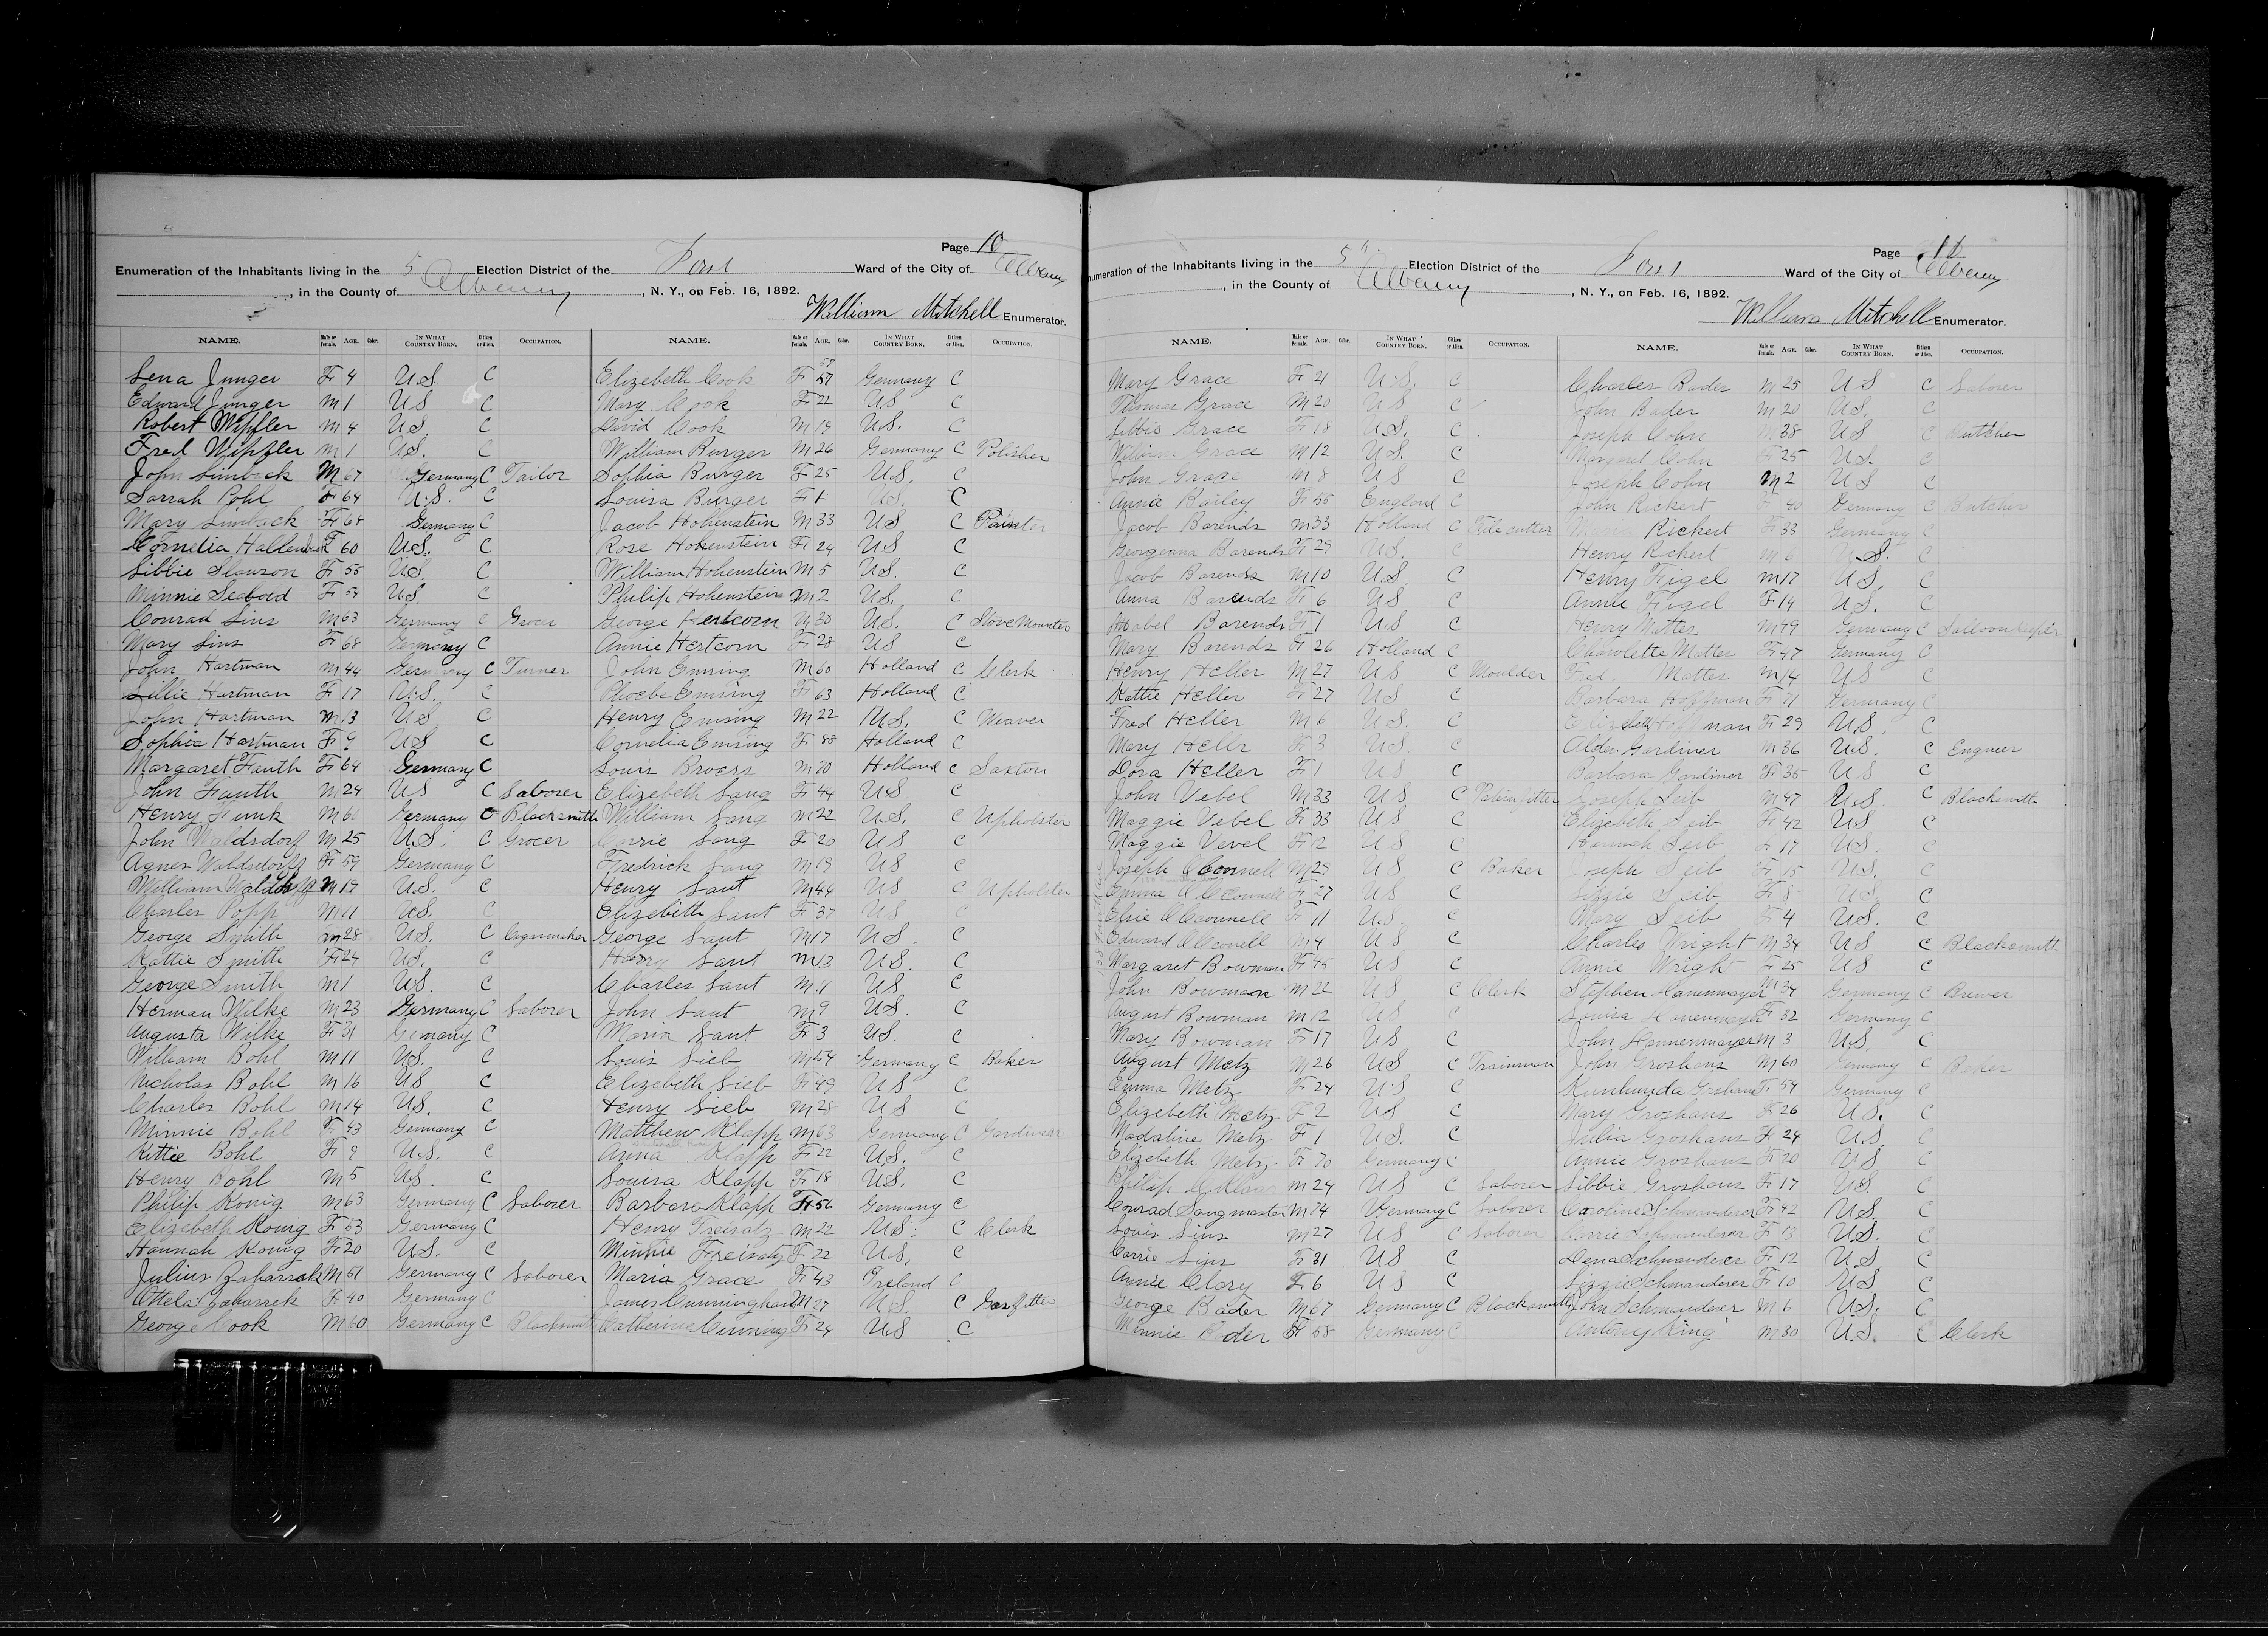 Page 10
Enumeration of the Inhabitants living in the 5 Election District of the First Ward of the City of Albany
, in the County of Albany , N. Y., on Feb. 16, 1892.
William Mitchell Enumerator.
NAME. Male or Female. AGE. Color. IN WHAT COUNTRY BORN. Citizen or Alien. OCCUPATION.
Lena Junger F 4 U.S. C
Edward Junger M 1 US C
Robert Wipfler M 4 U.S. C
Fred Wipfler M 1 U.S. C
John Limback M 67 Germany C Tailor
Sarrah Pohl F 64 U.S. C
Mary Limback F 68 Germany C
Cornelia Hallenback F 60 U.S. C
Libbie Slawson F 55 U.S. C
Minnie Seabold F U.S. C
Conrad Lins M 63 Germany C Grocer
Mary Lins F 68 Germany C
John Hartman M 44 Germany C Turner
Lillie Hartman F 17 U.S. C
John Hartman M 13 U.S. C
Sophia Hartman F 9 US C
Margaret Fauth F 64 Germany C
John Fauth M 24 US C Laborer
Henry Funk M 60 Germany C Blacksmith
John Waldsdorf M 25 U.S. C Grocer
Agnes Waldsdorf F 59 Germany C
William M 19 U.S. C
Charles Popp M 11 U.S. C
George Smith M 28 U.S. C Cigarmaker
Kattie Smith F 24 U.S. C
George Smith M 1 U.S. C
Herman Wilke M 23 Germany C Laborer
Augusta Wilke F 31 Germany C
William Bohl M 11 U.S. C
Nicholas Bohl M 16 US C
Charles Bohl M 14 U.S. C
Minnie Bohl F 43 Germany C
Kittie Bohl F 9 U.S. C
Henry Bohl M 5 U.S. C
Philip Konig M 63 Germany C Laborer
Elizabeth Konig F 53 Germany C
Hannah Konig F 20 U.S. C
Julius M 51 Germany C Laborer
F 40 Germany C
George Cook M 60 Germany C Blacksmith
NAME. Male or Female. AGE. Color. IN WHAT COUNTRY BORN. Citizen or Alien. OCCUPATION.
Elizebeth Cook F 57 Germany C
Mary Cook F 22 US C
David Cook M 19 U.S. C
William Burger M 26 Germany C Polisher
Sophia Burger F 25 U.S. C
Louisa Burger F 1 U.S. C
Jacob Hohenstein M 33 U.S C Painter
Rose Hohenstein F 24 US C
William Hohenstein M 5 U.S. C
Philip Hohenstein M 2 U.S. C
George Hertcorn M 30 U.S. C Stove Mounter
Annie Hertcorn F 28 US C
John Emsing M 60 Holland C Clerk
Phoebe Emsing F 63 Holland C
Henry Emsing M 22 U.S. C Weaver
Cornelia Emsing F 88 Holland C
Louis Broers M 70 Holland C Saxton
Elizebeth Lang F 44 U.S C
William Lang M 22 U.S. C Upholster
Carrie Lang F 20 US C
Fredrick Lang M 19 US C
Henry Laut M 44 US C Upholster
Elizebeth Laut F 37 US C
George Laut M 17 U.S. C
Harry Laut M 13 U.S. C
Charles Laut M 11 US C
John Laut M 9 U.S. C
Maria Laut F 3 U.S. C
Louis Sieb M 54 Germany C Baker
Elizebeth Sieb F 49 US C
Henry Sieb M 28 U.S C
Matthew Klapp M 63 Germany C
Anna Klapp F 22 U.S. C
Louisa Klapp F 18 U.S. C
Barbara Klapp F 56 Germany C
Henry Freisatz M 22 U.S. C Clerk
Minnie Freisatz F 22 U.S. C
Maria Grace F 43 Ireland C
James Cunningham M 27 U.S. C Gasfitter
Catherine Cunning F 24 U.S C
Page 10
Enumeration of the Inhabitants living in the 5 Election District of the First Ward of the City of Albany
, in the County of Albany , N. Y., on Feb. 16, 1892.
William Mitchell Enumerator.
NAME. Male or Female. AGE. Color. IN WHAT COUNTRY BORN. Citizen or Alien. OCCUPATION.
Mary Grace F 21 U.S. C
Thomas Grace M 20 U.S C
Libbie Grace F 18 U.S. C
William Grace M 12 U.S. C
John Grace M 8 U.S C
Anna Bailey F 55 England C
Jacob Barends M 33 Holland C File cutter
Georgenna Barends F 29 U.S. C
Jacob Barends M 10 U.S. C
Anna Barends F 6 US C
Mabel Barends F 1 U.S C
Mary Barends F 26 Holland C
Henry Heller M 27 US C Moulder
Kattie Heller F 27 U.S C
Fred Heller M 6 U.S. C
Mary Hellr F 3 U.S. C
Dora Heller F 1 US C
John Vebel M 33 US C
Maggie Vebel F 33 US C
Maggie Vevel F 12 US C
Joseph O Connell M 29 US C Baker
Emma O Connell F 27 US C
Elsie O Connell F 11 U.S. C
Edward O Conell M 4 US C
Margaret Bowman F 45 US C
John Bowman M 22 US C Clerk
August Bowman M 12 U.S C
Mary Bowman F 17 US C
August Metz M 26 U.S C Trainman
Emma Metz F 24 U.S C
Elizebeth Metz F 2 U.S C
Madaline Metz F 1 U.S. C
Elizebeth Metz F 70 Germany C
Philip M 24 US C Laborer
Conrad Sangmaster M 74 Germany C Laborer
Louis Lins M 27 US C Laborer
Carrie Lins F 31 US C
Annie Clary F 6 US C
George Bader M 67 Germany C Blacksmith
Minnie Bader F 58 Germany C
NAME. Male or Female. AGE. Color. IN WHAT COUNTRY BORN. Citizen or Alien. OCCUPATION.
Charles Bader M 25 U.S C Laborer
John Bader M 20 U.S. C
Joseph Cohn M 38 US C Butcher
Margaret Cohn F 25 U.S. C
Joseph Cohn M 2 US C
John Rickert 40 Germany C Butcher
Rickert F 33 Germany C
Henry Rickert M 6 U.S. C
Henry Figel M 17 U.S. C
Annie Figel F 14 U.S. C
Henry Matter M 49 Germany C Salloonkeeper
Charolette Matter F 47 Germany C
Fred. Matter M 14 US C
Barbara Hoffman F 71 Germany C
Elizebeth Hoffman F 29 U.S. C
Alden Gardiner M 36 U.S. C Engneer
Barbara Gardiner F 35 US C
Joseph Seib M 47 U.S. C Blacksmith
Elizebeth Seib F 42 US C
Hannah Seib F 17 U.S. C
Joseph Seib F 15 U.S. C
Lizzie Seib F 8 US C
Mary Seib F 4 U.S. C
Charles Wright M 34 US C Blacksmith
Annie Wright F 25 US C
Stephen Hanenmayer M 34 Germany C Brewer
Louisa F 32 Germany C
John Hannenmayer M 3 U.S. C
John Groshans M 60 Germany C Baker
Kunhunda F 54 Germany C
Mary Groshans F 26 U.S. C
Julia Groshans F 24 U.S. C
Annie Groshans F 20 US C
Libbie Groshans F 17 U.S. C
Caroline Schmanderer F 42 U.S. C
Carrie Schmanderer F 13 U.S. C
Lena Schmanderer F 12 U.S C
Lizzie Schmanderer F 10 U.S C
John Schmanderer M 6 U.S. C
Antony King M 30 U.S. C Clerk